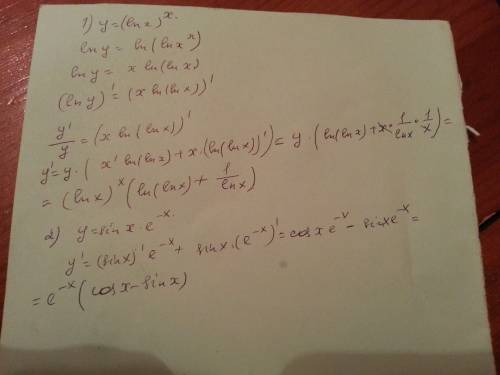 1) y = (ln x)^x.
ln y = ln(ln x^x)
ln y = x ln(ln x)
(ln y)' = (x ln(ln x))'
y'/y = (x ln(ln x))'
y' = y · (x' ln(ln x) + x · (ln(ln x))') = y · (ln(ln x) + x · 1/ln x · 1/x) =
= (ln x)^x (ln(ln x) + 1/ln x)
2) y = sin x · e^-x.
y' = (sin x)' e^-x + sin x · (e^-x)' = cos x e^-x - sin x e^-x =
= e^-x (cos x - sin x)